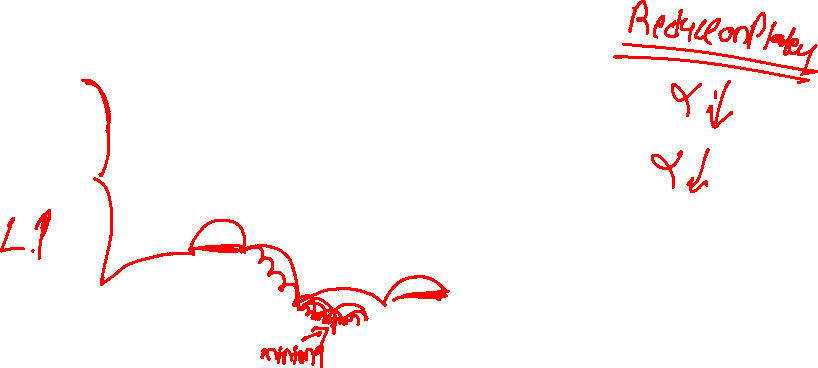 ReduceonPlateu
α ↓
α ↓
L.P
minima